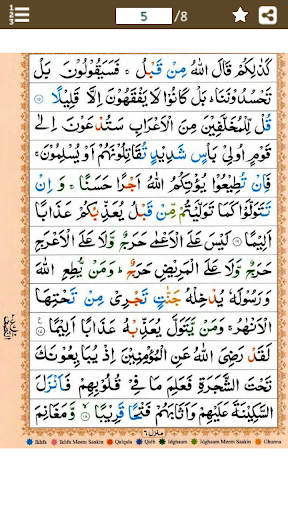 5 /8
كَذٰلِكُمْ قَالَ اللّٰهُ مِنْ قَبْلُ ۚ فَسَيَقُوْلُوْنَ بَلْ
تَحْسُدُوْنَنَا ؕ بَلْ كَانُوْا لَا يَفْقَهُوْنَ اِلَّا قَلِيْلًا ﴿۱۵﴾
قُلْ لِّلْمُخَلَّفِيْنَ مِنَ الْاَعْرَابِ سَتُدْعَوْنَ اِلٰى
قَوْمٍ اُولِيْ بَاْسٍ شَدِيْدٍ تُقَاتِلُوْنَهُمْ اَوْ يُسْلِمُوْنَ ۚ
فَاِنْ تُطِيْعُوْا يُؤْتِكُمُ اللّٰهُ اَجْرًا حَسَنًا ۚ وَاِنْ
تَتَوَلَّوْا كَمَا تَوَلَّيْتُمْ مِّنْ قَبْلُ يُعَذِّبْكُمْ عَذَابًا
اَلِيْمًا ﴿۱۶﴾ لَيْسَ عَلَى الْاَعْمٰى حَرَجٌ وَّلَا عَلَى الْاَعْرَجِ
حَرَجٌ وَّلَا عَلَى الْمَرِيْضِ حَرَجٌ ؕ وَمَنْ يُّطِعِ اللّٰهَ
وَرَسُوْلَهٗ يُدْخِلْهُ جَنّٰتٍ تَجْرِيْ مِنْ تَحْتِهَا
الْاَنْهٰرُ ۚ وَمَنْ يَّتَوَلَّ يُعَذِّبْهُ عَذَابًا اَلِيْمًا ﴿۱۷﴾
لَقَدْ رَضِيَ اللّٰهُ عَنِ الْمُؤْمِنِيْنَ اِذْ يُبَايِعُوْنَكَ
تَحْتَ الشَّجَرَةِ فَعَلِمَ مَا فِيْ قُلُوْبِهِمْ فَاَنْزَلَ
السَّكِيْنَةَ عَلَيْهِمْ وَاَثَابَهُمْ فَتْحًا قَرِيْبًا ﴿۱۸﴾ وَّمَغَانِمَ
منزل ٦
Ikhfa Ikhfa Meem Saakin Qalqala Qalb Idghaam Idghaam Meem Saakin Ghunna